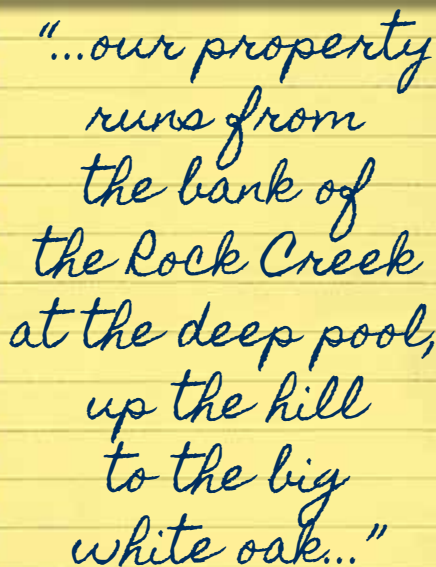 "...our property
runs from
the bank of
the Rock Creek
at the deep pool,
up the hill
to the big
white oak..."